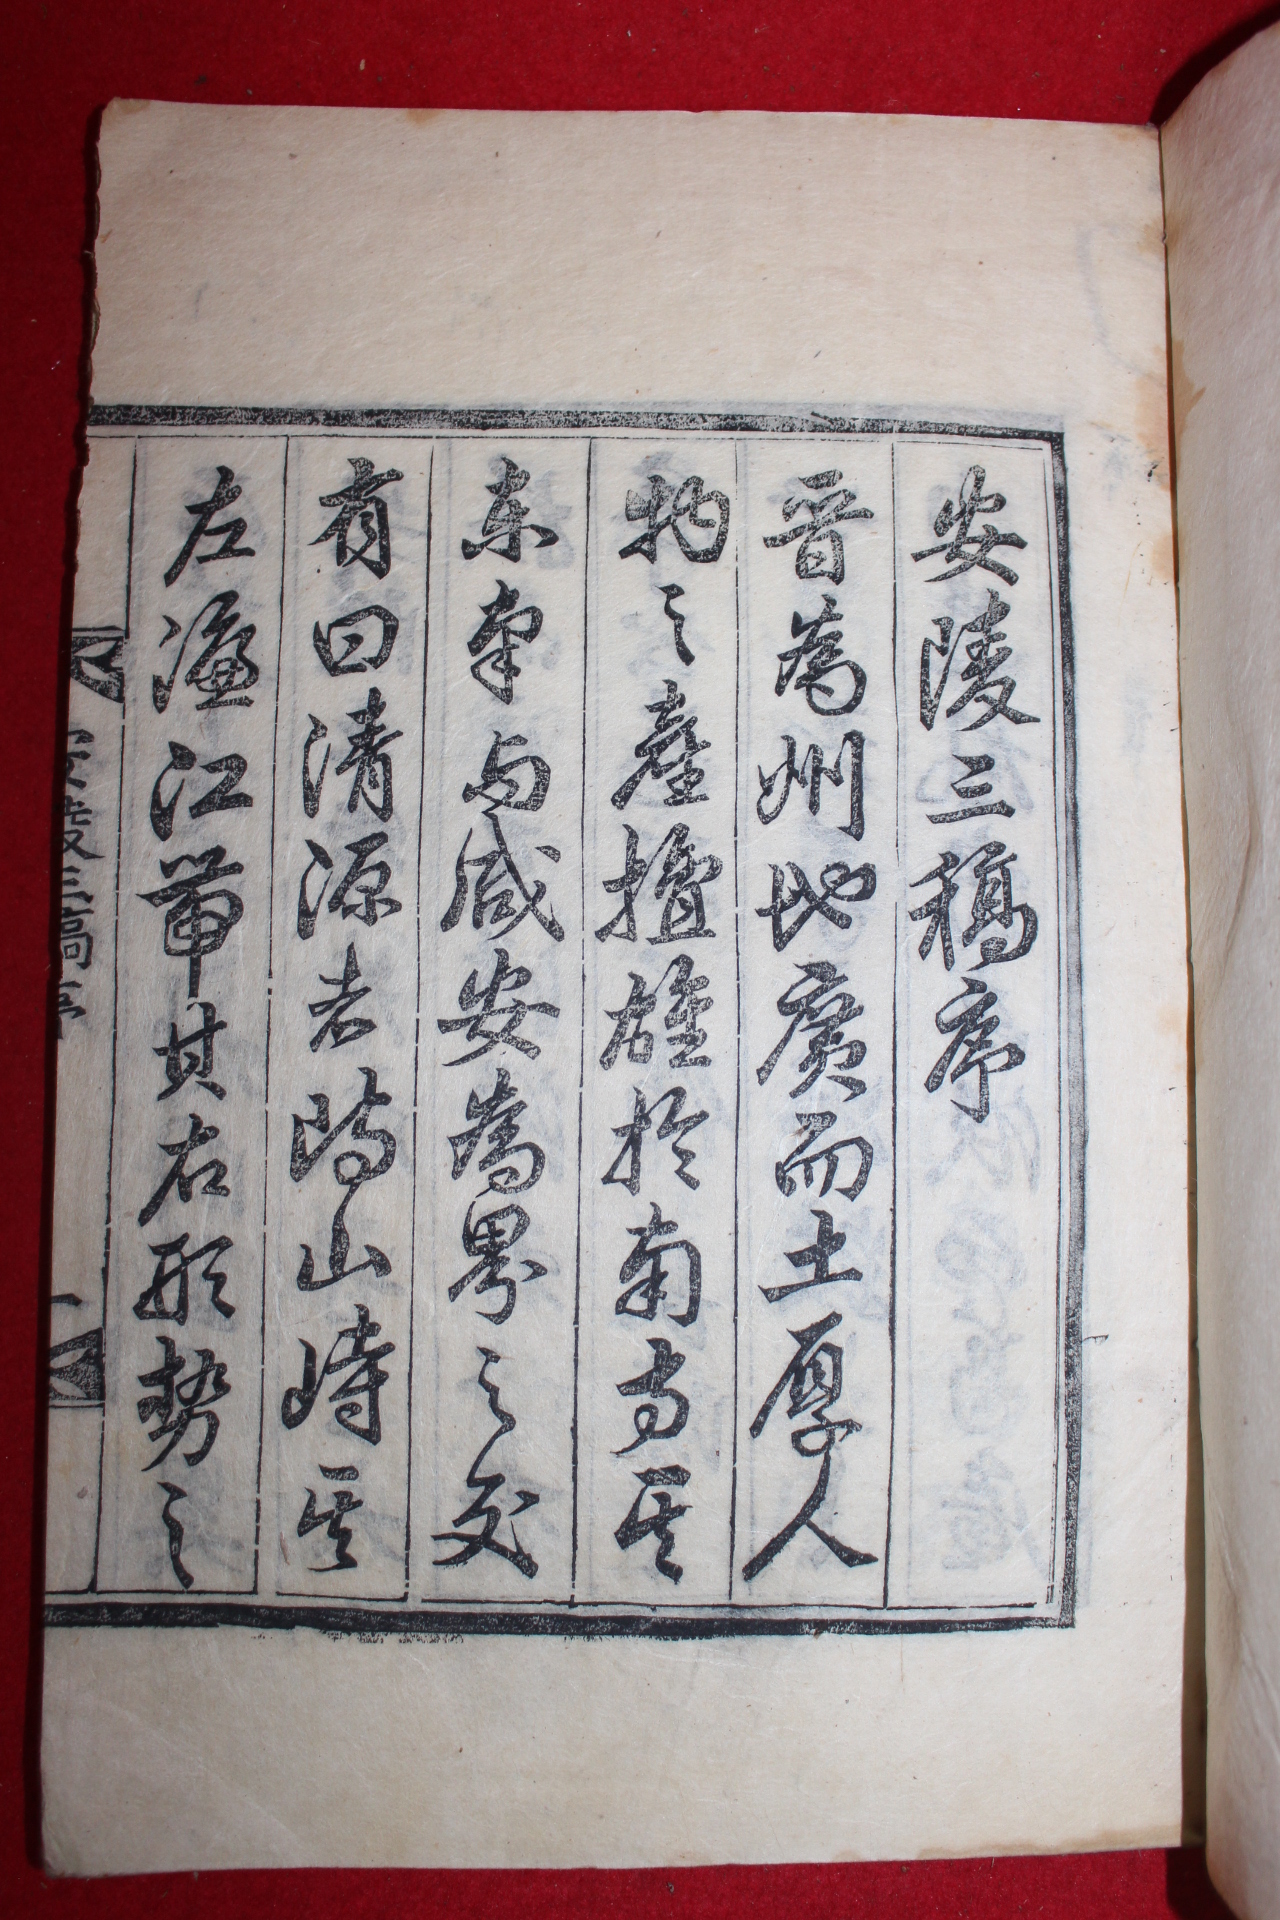 安陵三稿序
晋為州地廣而土厚人
物之產擅雄於南方其
东南与咸安為界之交
有曰清源者防山峙其
左濂江帶其右形勢之
安陵三稿序 一